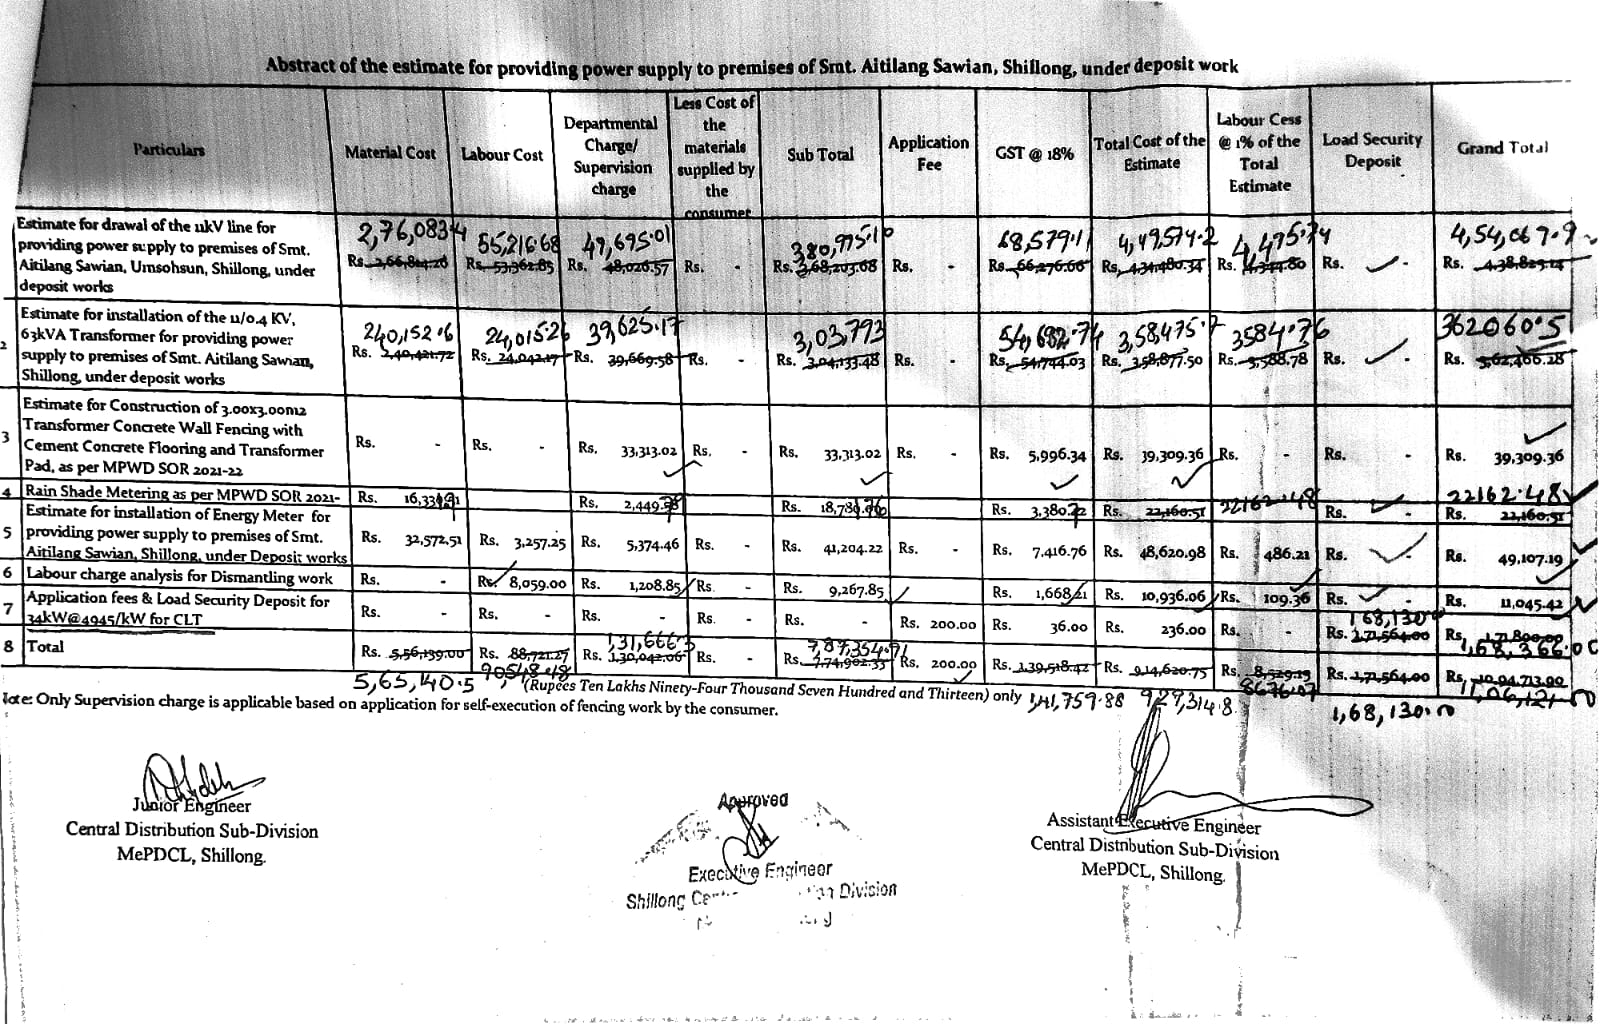 Abstract of the estimate for providing power supply to premises of Smt. Aitilang Sawian, Shillong, under deposit work
Particulars
Material Cost
Labour Cost
Departmental
Charge/
Supervision
charge
Less Cost of
the
materials
supplied by
the
consumer
Sub Total
Application
Fee
GST @ 18%
Total Cost of the
Estimate
Labour Cess
@ 1% of the
Total
Estimate
Load Security
Deposit
Grand Total
Estimate for drawal of the 11kV line for
providing power supply to premises of Smt.
Aitilang Sawian, Umsohsun, Shillong, under
deposit works
2,76,083.4 55,216.68 49,695.01 380,995.10 68,579.11 4,49,574.2 4,495.74 4,54,069.9
Rs. 2,66,814.26 Rs. 53,362.85 Rs. 48,026.57 Rs. - Rs. 3,68,203.68 Rs. - Rs. 66,276.66 Rs. 4,34,480.34 Rs. 4,344.80 Rs. Rs. 4,38,825.14
2
Estimate for installation of the 11/0.4 KV,
63kVA Transformer for providing power
supply to premises of Smt. Aitilang Sawian,
Shillong, under deposit works
240,152.6 24,015.26 39,625.17 3,03,793 54,682.74 3,58,475.7 3584.76 362060.5
Rs. 2,40,421.72 Rs. 24,042.17 Rs. 39,669.58 Rs. - Rs. 3,04,133.48 Rs. - Rs. 54,744.03 Rs. 3,58,877.50 Rs. 3,588.78 Rs. - Rs. 3,62,466.28
3
Estimate for Construction of 3.00x3.00m2
Transformer Concrete Wall Fencing with
Cement Concrete Flooring and Transformer
Pad, as per MPWD SOR 2021-22
Rs. - Rs. - Rs. 33,313.02 Rs. - Rs. 33,313.02 Rs. - Rs. 5,996.34 Rs. 39,309.36 Rs. - Rs. - Rs. 39,309.36
4 Rain Shade Metering as per MPWD SOR 2021-
22162.48 22162.48
Rs. Rs. Rs. Rs. Rs. 22,160.51 Rs. - Rs. 22,160.51
5
Estimate for installation of Energy Meter for
providing power supply to premises of Smt.
Aitilang Sawian, Shillong, under Deposit works
Rs. 32,572.51 Rs. 3,257.25 Rs. 5,374.46 Rs. - Rs. 41,204.22 Rs. - Rs. 7,416.76 Rs. 48,620.98 Rs. 486.21 Rs. Rs. 49,107.19
6 Labour charge analysis for Dismantling work
Rs. - Rs. 8,059.00 Rs. 1,208.85 Rs. - Rs. 9,267.85 Rs. 1,668.21 Rs. 10,936.06 Rs. 109.36 Rs. - Rs. 11,045.42
7
Application fees & Load Security Deposit for
34kW@4945/kW for CLT
168,130.00
Rs. - Rs. - Rs. - Rs. - Rs. - Rs. 200.00 Rs. 36.00 Rs. 236.00 Rs. - Rs. 1,71,564.00 Rs. 1,71,800.00
1,68,366.00
8 Total
1,31,666.3 7,87,354.91
Rs. 5,56,139.00 Rs. 88,721.27 Rs. 1,30,042.06 Rs. - Rs. 7,74,902.33 Rs. 200.00 Rs. 1,39,518.42 Rs. 9,14,620.75 Rs. 8,529.15 Rs. 1,71,564.00 Rs. 10,94,713.90
5,65,140.5 90548.18 8676.07 11,06,121.00
(Rupees Ten Lakhs Ninety-Four Thousand Seven Hundred and Thirteen) only 1,41,759.88 929,314.8 1,68,130.00
Note: Only Supervision charge is applicable based on application for self-execution of fencing work by the consumer.
Junior Engineer
Central Distribution Sub-Division
MePDCL, Shillong.
Approved
Executive Engineer
Shillong Division
Assistant Executive Engineer
Central Distribution Sub-Division
MePDCL, Shillong.